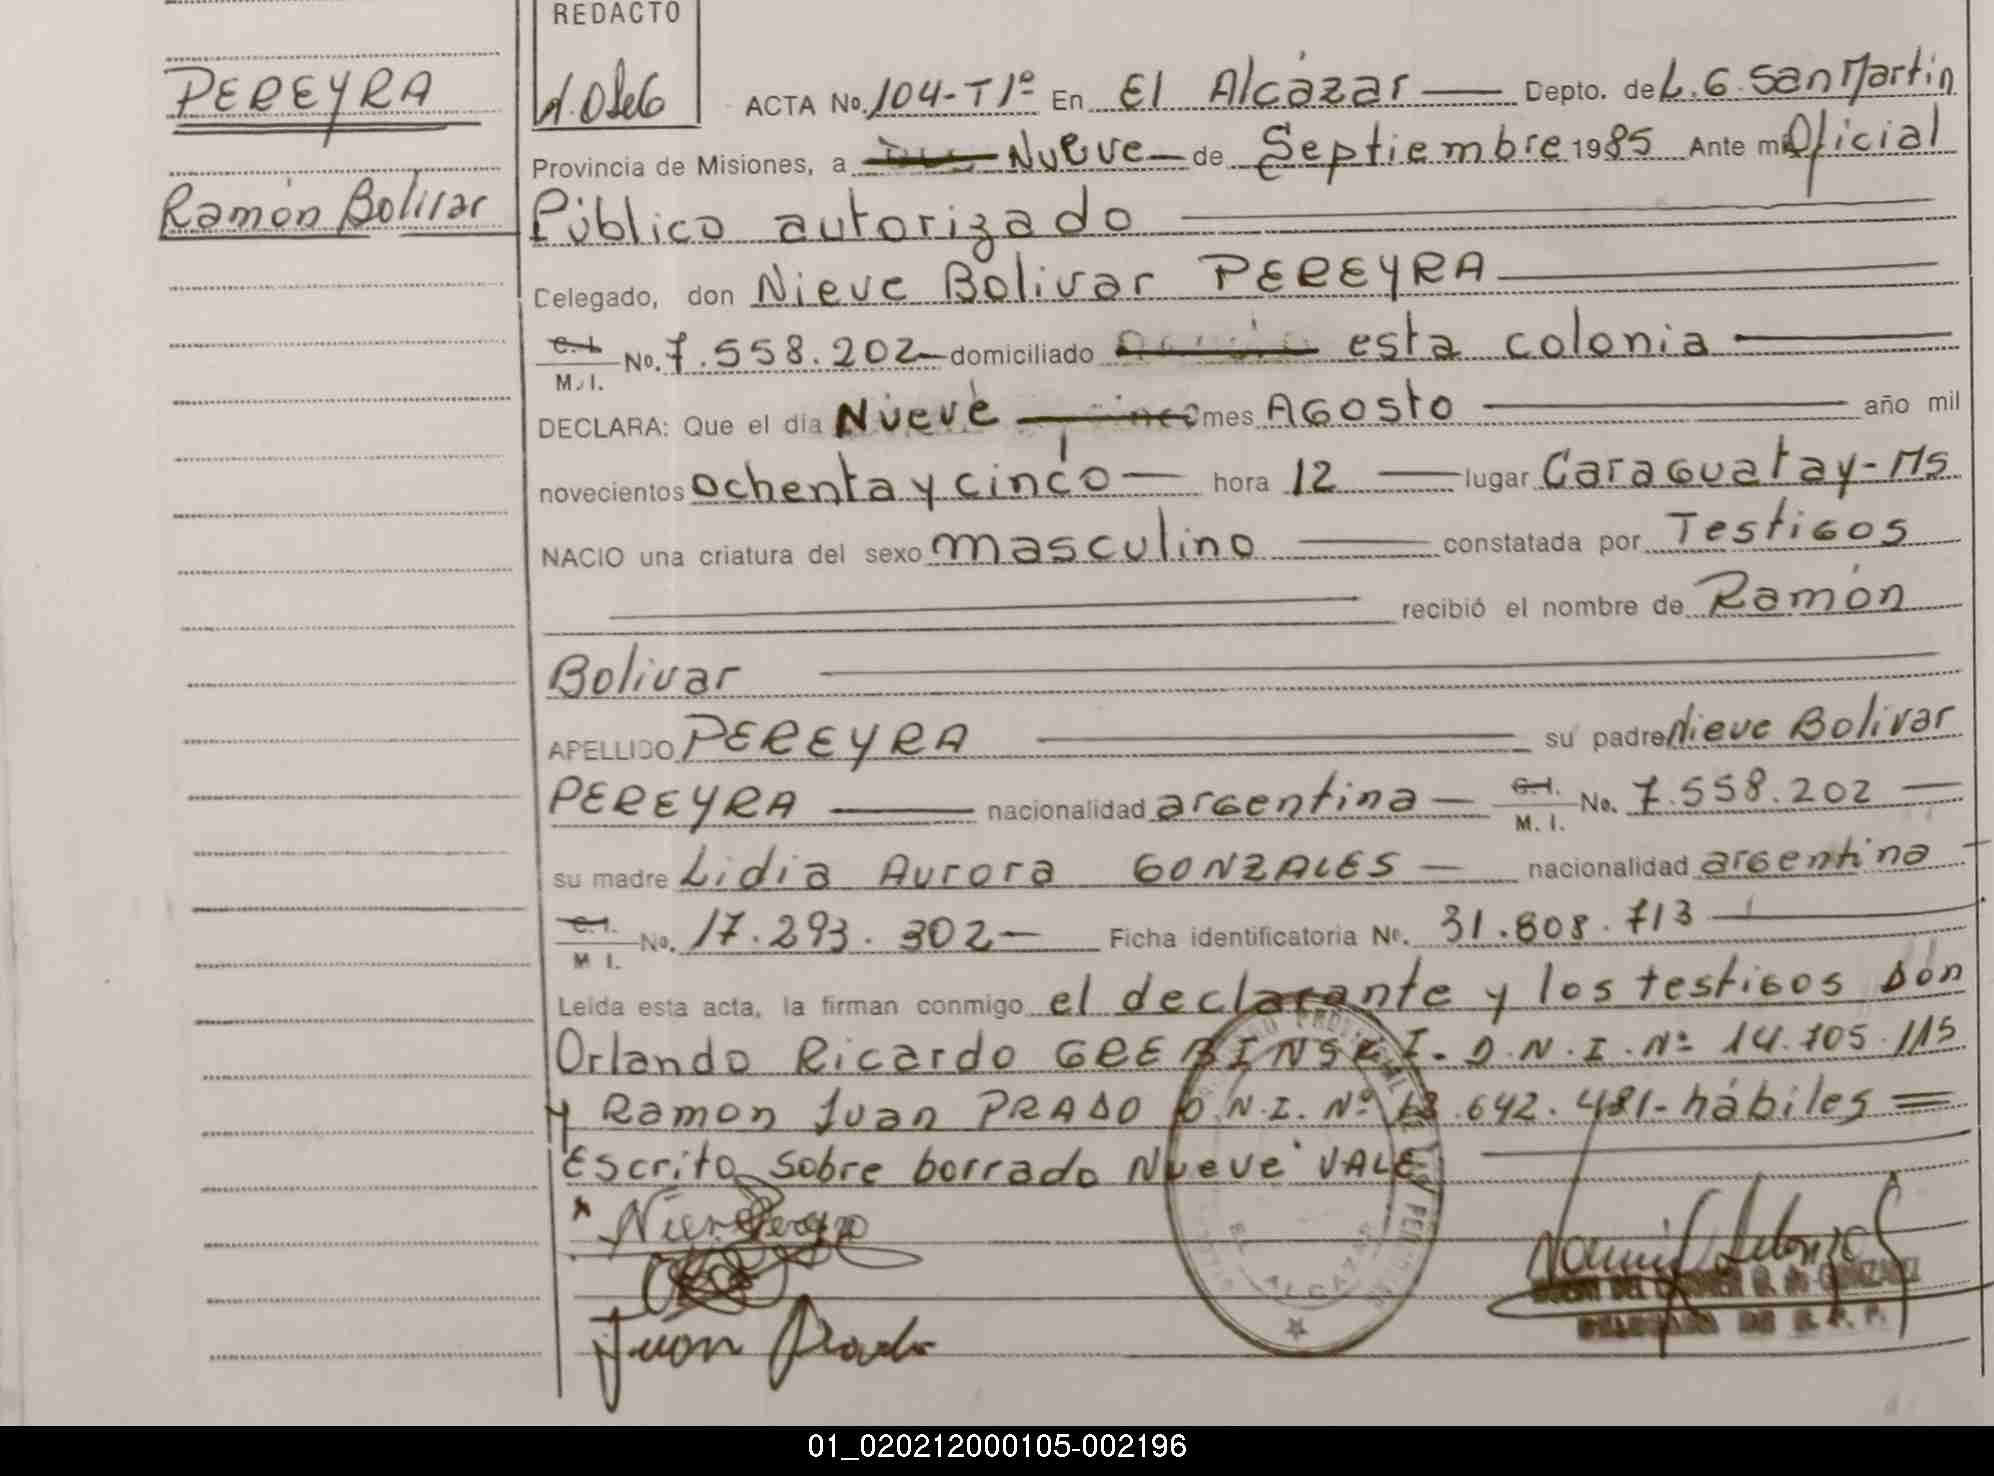 REDACTO
PEREYRA
Ramón Bolivar
ACTA No. 104-T1º En El Alcázar Depto. de L. G. San Martin
Provincia de Misiones, a Nueve de Septiembre 1985 Ante mi Oficial
Público autorizado
Celegado, don Nieve Bolivar PEREYRA
C.I. M.I. No. 7.558.202 domiciliado esta colonia
DECLARA: Que el día Nueve mes Agosto año mil
novecientos ochenta y cinco hora 12 lugar Caraguatay-Ms
NACIO una criatura del sexo masculino constatada por Testigos
recibió el nombre de Ramón
Bolivar
APELLIDO PEREYRA su padre Nieve Bolivar
PEREYRA nacionalidad argentina C.I. M. I. No. 7.558.202
su madre Lidia Aurora GONZALES nacionalidad argentina
C.I. M I. No. 17.293.302 Ficha identificatoria No. 31.808.713
Leida esta acta, la firman conmigo el declarante y los testigos don
Orlando Ricardo GREBINSKI. D.N.I. Nº 14.105.115
y Ramon Juan PRADO D.N.I. Nº 13.642.481- hábiles =
Escrito sobre borrado Nueve VALE
Juan Prado
EL ALCAZAR
01_020212000105-002196